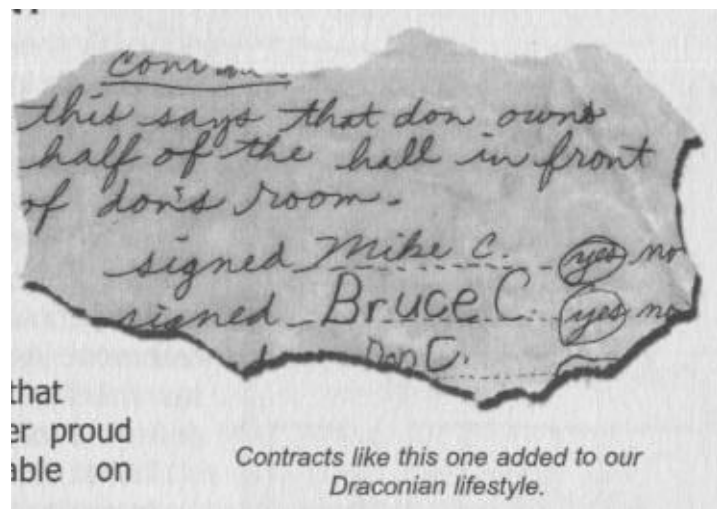 this says that don owns
half of the hall in front
of don's room.
signed Mike C. yes no
signed Bruce C. yes no
Don C.
that
er proud
able on
Contracts like this one added to our
Draconian lifestyle.